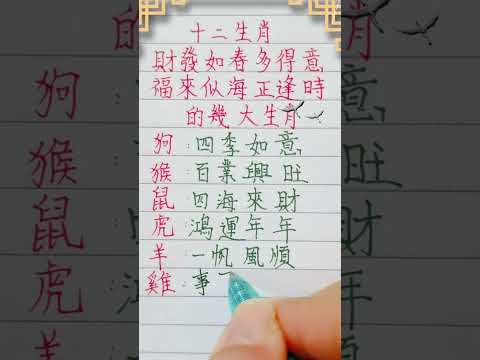 十二生肖
財發如春多得意
福來似海正逢時
的幾大生肖
狗:四季如意
猴:百業興旺
鼠:四海來財
虎:鴻運年年
羊:一帆風順
雞:事